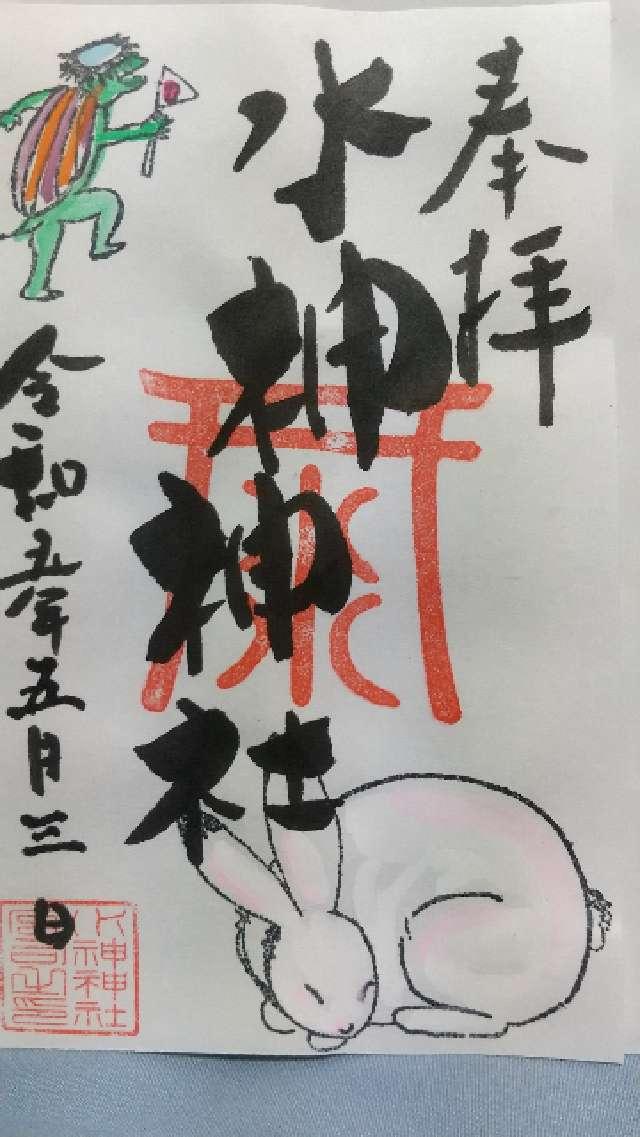 奉拝
水神神社
令和五年五月三日
水神神社
宮司之印